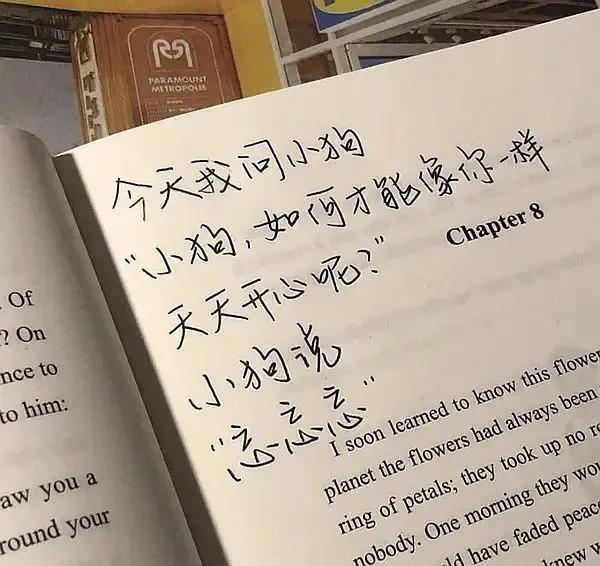 PARAMOUNT
METROPOLIS
今天我问小狗
"小狗,如何才能像你一样
天天开心呢?"
小狗说
"忘忘忘"
Of
? On
nce to
to him:
aw you a
round your
Chapter 8
I soon learned to know this flower
planet the flowers had always been
ring of petals; they took up no
nobody. One morning they
have faded
knew